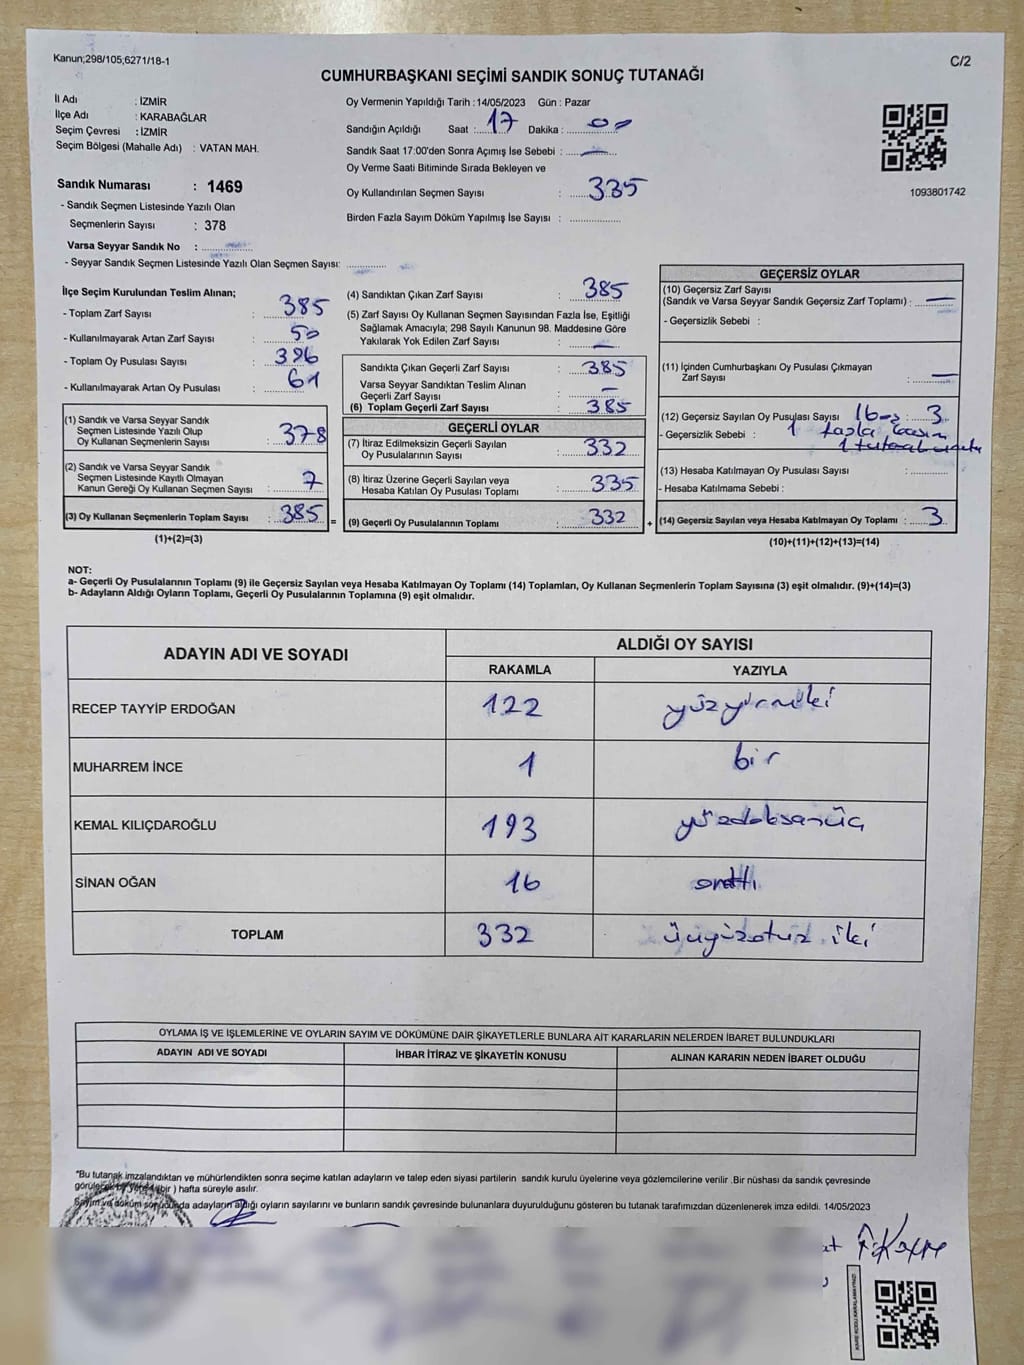 Kanun;298/105,6271/18-1
C/2
CUMHURBAŞKANI SEÇİMİ SANDIK SONUÇ TUTANAĞI
İl Adı : İZMİR
İlçe Adı : KARABAĞLAR
Seçim Çevresi : İZMİR
Seçim Bölgesi (Mahalle Adı) : VATAN MAH.
Sandık Numarası : 1469
- Sandık Seçmen Listesinde Yazılı Olan
Seçmenlerin Sayısı : 378
Varsa Seyyar Sandık No :
- Seyyar Sandık Seçmen Listesinde Yazılı Olan Seçmen Sayısı:
Oy Vermenin Yapıldığı Tarih : 14/05/2023 Gün : Pazar
Sandığın Açıldığı Saat : 17 Dakika : 00
Sandık Saat 17:00'den Sonra Açımış İse Sebebi : —
Oy Verme Saati Bitiminde Sırada Bekleyen ve
Oy Kullandırılan Seçmen Sayısı : 335
Birden Fazla Sayım Döküm Yapılmış İse Sayısı :
1093801742
İlçe Seçim Kurulundan Teslim Alınan;
- Toplam Zarf Sayısı : 385
- Kullanılmayarak Artan Zarf Sayısı : 50
- Toplam Oy Pusulası Sayısı : 396
- Kullanılmayarak Artan Oy Pusulası : 61
(1) Sandık ve Varsa Seyyar Sandık
Seçmen Listesinde Yazılı Olup
Oy Kullanan Seçmenlerin Sayısı : 378
(2) Sandık ve Varsa Seyyar Sandık
Seçmen Listesinde Kayıtlı Olmayan
Kanun Gereği Oy Kullanan Seçmen Sayısı : 7
(3) Oy Kullanan Seçmenlerin Toplam Sayısı : 385 =
(1)+(2)=(3)
(4) Sandıktan Çıkan Zarf Sayısı : 385
(5) Zarf Sayısı Oy Kullanan Seçmen Sayısından Fazla İse, Eşitliği
Sağlamak Amacıyla; 298 Sayılı Kanunun 98. Maddesine Göre
Yakılarak Yok Edilen Zarf Sayısı : —
Sandıkta Çıkan Geçerli Zarf Sayısı : 385
Varsa Seyyar Sandıktan Teslim Alınan
Geçerli Zarf Sayısı : —
(6) Toplam Geçerli Zarf Sayısı : 385
GEÇERLİ OYLAR
(7) İtiraz Edilmeksizin Geçerli Sayılan
Oy Pusulalarının Sayısı : 332
(8) İtiraz Üzerine Geçerli Sayılan veya
Hesaba Katılan Oy Pusulası Toplamı : 335
(9) Geçerli Oy Pusulalarının Toplamı : 332 +
GEÇERSİZ OYLAR
(10) Geçersiz Zarf Sayısı
(Sandık ve Varsa Seyyar Sandık Geçersiz Zarf Toplamı) : —
- Geçersizlik Sebebi :
(11) İçinden Cumhurbaşkanı Oy Pusulası Çıkmayan
Zarf Sayısı : —
(12) Geçersiz Sayılan Oy Pusulası Sayısı : 3
- Geçersizlik Sebebi : 1 fazla
(13) Hesaba Katılmayan Oy Pusulası Sayısı :
- Hesaba Katılmama Sebebi :
(14) Geçersiz Sayılan veya Hesaba Katılmayan Oy Toplamı : 3
(10)+(11)+(12)+(13)=(14)
NOT:
a- Geçerli Oy Pusulalarının Toplamı (9) ile Geçersiz Sayılan veya Hesaba Katılmayan Oy Toplamı (14) Toplamları, Oy Kullanan Seçmenlerin Toplam Sayısına (3) eşit olmalıdır. (9)+(14)=(3)
b- Adayların Aldığı Oyların Toplamı, Geçerli Oy Pusulalarının Toplamına (9) eşit olmalıdır.
ADAYIN ADI VE SOYADI
ALDIĞI OY SAYISI
RAKAMLA YAZIYLA
RECEP TAYYİP ERDOĞAN 122 yüzyirmiiki
MUHARREM İNCE 1 bir
KEMAL KILIÇDAROĞLU 193 yüzdoksanüç
SİNAN OĞAN 16 onaltı
TOPLAM 332 üçyüzotuz iki
OYLAMA İŞ VE İŞLEMLERİNE VE OYLARIN SAYIM VE DÖKÜMÜNE DAİR ŞİKAYETLERLE BUNLARA AİT KARARLARIN NELERDEN İBARET BULUNDUKLARI
ADAYIN ADI VE SOYADI İHBAR İTİRAZ VE ŞİKAYETİN KONUSU ALINAN KARARIN NEDEN İBARET OLDUĞU
*Bu tutanak imzalandıktan ve mühürlendikten sonra seçime katılan adayların ve talep eden siyasi partilerin sandık kurulu üyelerine veya gözlemcilerine verilir .Bir nüshası da sandık çevresinde
görülecek bir yere (bir ) hafta süreyle asılır.
Sayım ve döküm sonucunda adayların aldığı oyların sayılarını ve bunların sandık çevresinde bulunanlara duyurulduğunu gösteren bu tutanak tarafımızdan düzenlenerek imza edildi. 14/05/2023